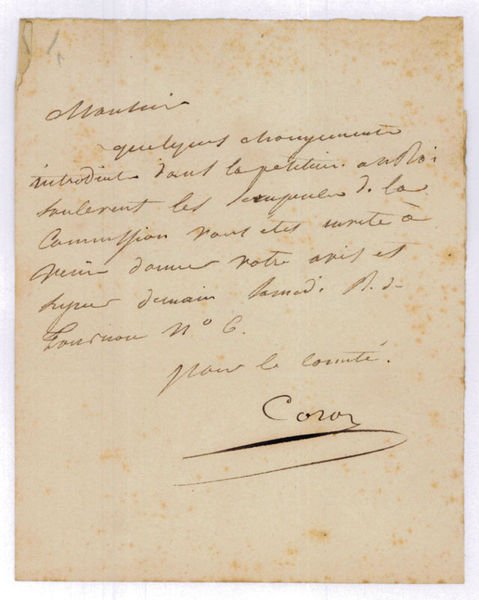 Monsieur
quelques changements
introduits dans la petition au Roi
soulevent les scrupules de la
Commission vous etes invité à
venir donner votre avis et
signer demain Samedi R. de
Tournon N° 6.
pour le comité.
Coroz